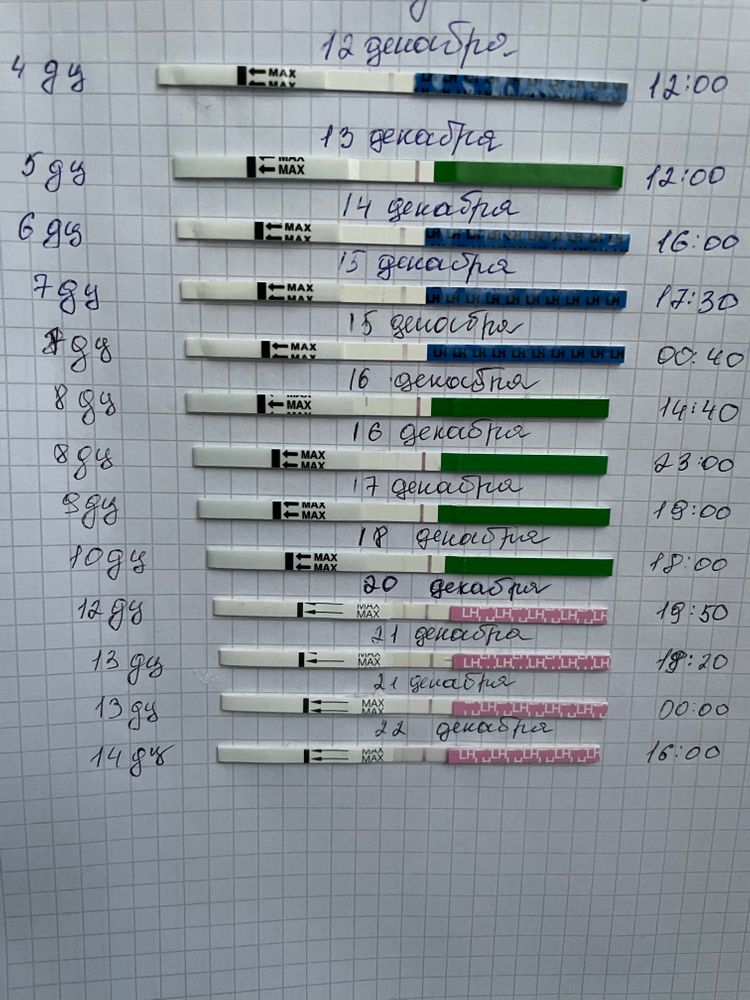 12 декабря
4 дц ← MAX ← MAX 12:00
13 декабря
5 дц ← MAX ← MAX 12:00
14 декабря
6 дц ← MAX ← MAX LH LH LH LH LH LH LH LH 16:00
15 декабря
7 дц ← MAX ← MAX LH LH LH LH LH LH LH LH 17:30
15 декабря
7 дц ← MAX ← MAX LH LH LH LH LH LH LH LH 00:40
16 декабря
8 дц ← MAX ← MAX 14:40
16 декабря
8 дц ← MAX ← MAX 23:00
17 декабря
9 дц ← MAX ← MAX 19:00
18 декабря
10 дц ← MAX ← MAX 18:00
20 декабря
12 дц MAX MAX LH LH LH LH LH 19:50
21 декабря
13 дц MAX MAX LH LH LH LH LH 19:20
21 декабря
13 дц MAX MAX LH LH LH LH LH 00:00
22 декабря
14 дц MAX MAX LH LH LH LH LH 16:00